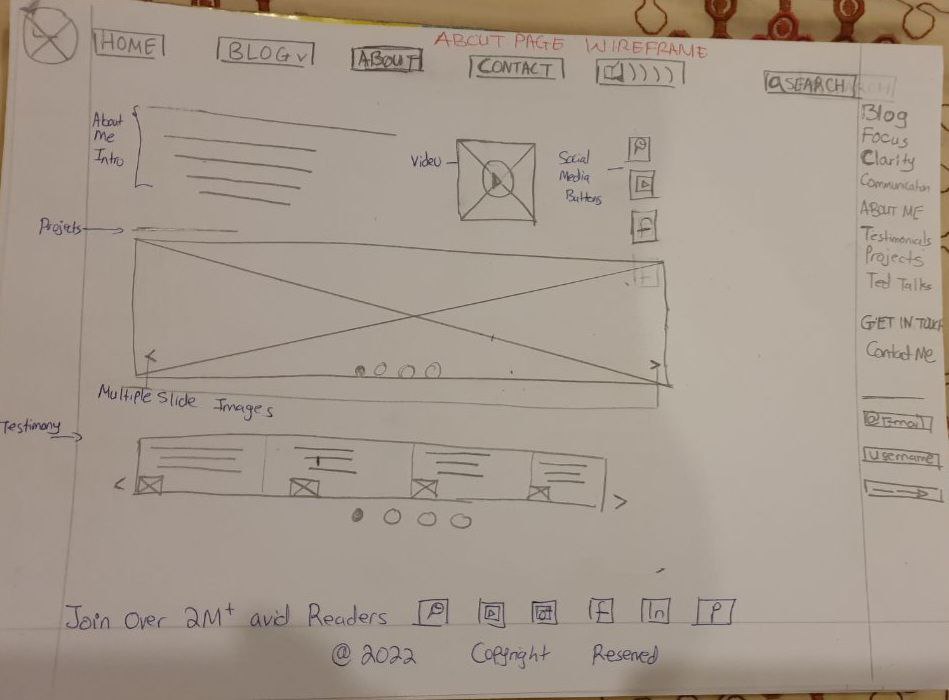 ABOUT PAGE WIREFRAME
HOME
BLOG v
ABOUT
CONTACT
SEARCH
About
Me
Intro
Video
Social
Media
Buttons
Projects
Multiple Slide Images
Testimony
Blog
Focus
Clarity
Communication
ABOUT ME
Testimonials
Projects
Ted Talks
GET IN TOUCH
Contact Me
@ Email
Username
Join Over 2M+ avid Readers
f
In
P
@ 2022 Copyright Reserved